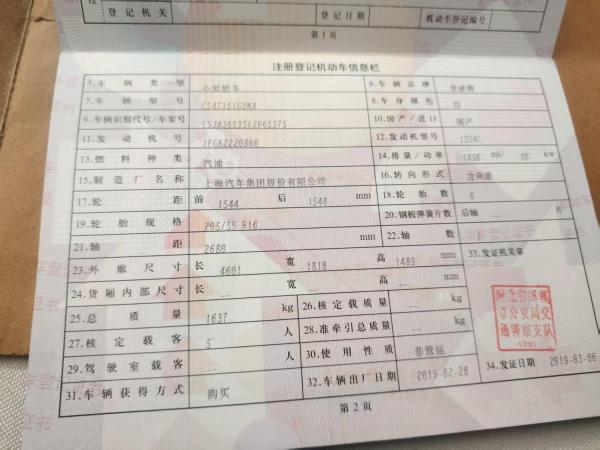 登记机关 登记日期 机动车登记编号
第1页
注册登记机动车信息栏
5.车辆类型 小型轿车 6.车辆品牌 荣威牌
7.车辆型号 CSA7151GDMA 8.车身颜色 白
9.车辆识别代号/车架号 10.国产/进口 国产
11.发动机号 12.发动机型号 15S4C
13.燃料种类 汽油 14.排量/功率 ml/ 88 kw
15.制造厂名称 上海汽车集团股份有限公司 16.转向形式 方向盘
17.轮距 前 1544 后 1548 mm 18.轮胎数 4
19.轮胎规格 205/55 R16 20.钢板弹簧片数 后轴 -- 片
21.轴距 2680 mm 22.轴数
23.外廓尺寸 长 4601 宽 1818 高 1489 mm 33.发证机关章
24.货厢内部尺寸 长 -- 宽 -- 高 -- mm
25.总质量 1637 kg 26.核定载质量 -- kg
27.核定载客 5 人 28.准牵引总质量 -- kg
29.驾驶室载客 -- 人 30.使用性质 非营运
31.车辆获得方式 购买 32.车辆出厂日期 2019-02-28 34.发证日期 2019-03-06
市公安局交
通警察支队
第2页